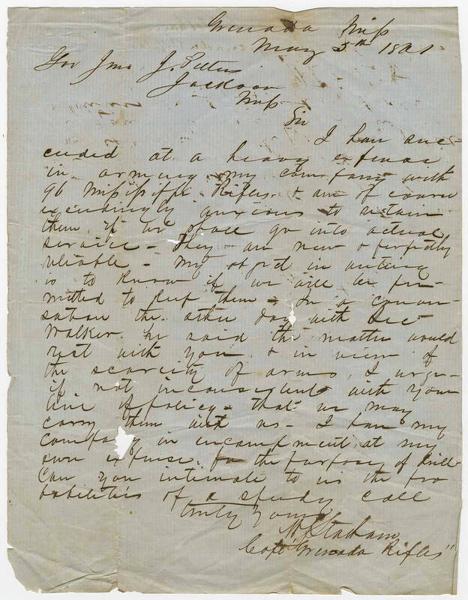 Grenada Miss
May 5th 1861
Gov Jno J. Pettus
Jackson
Miss
Sir
I have suc-
ceeded at a heavy expense
in arming my company with
96 Mississippi Rifles & am of course
exceedingly anxious to retain
them if we shall go into actual
service - They are new & perfectly
reliable - My object in writing
is to know if we will be per-
mitted to keep them - In a conver-
sation the other day with Sec
Walker he said the matter would
rest with you & in view of
the scarcity of arms, I urge
if not inconsistent with your
line of policy - that we may
carry them with us - I have my
company in encampment at my
own expense for the purpose of drill
Can you intimate to us the pro
babilities of a speedy call
Truly Yours
Statham
Capt "Grenada Rifles"